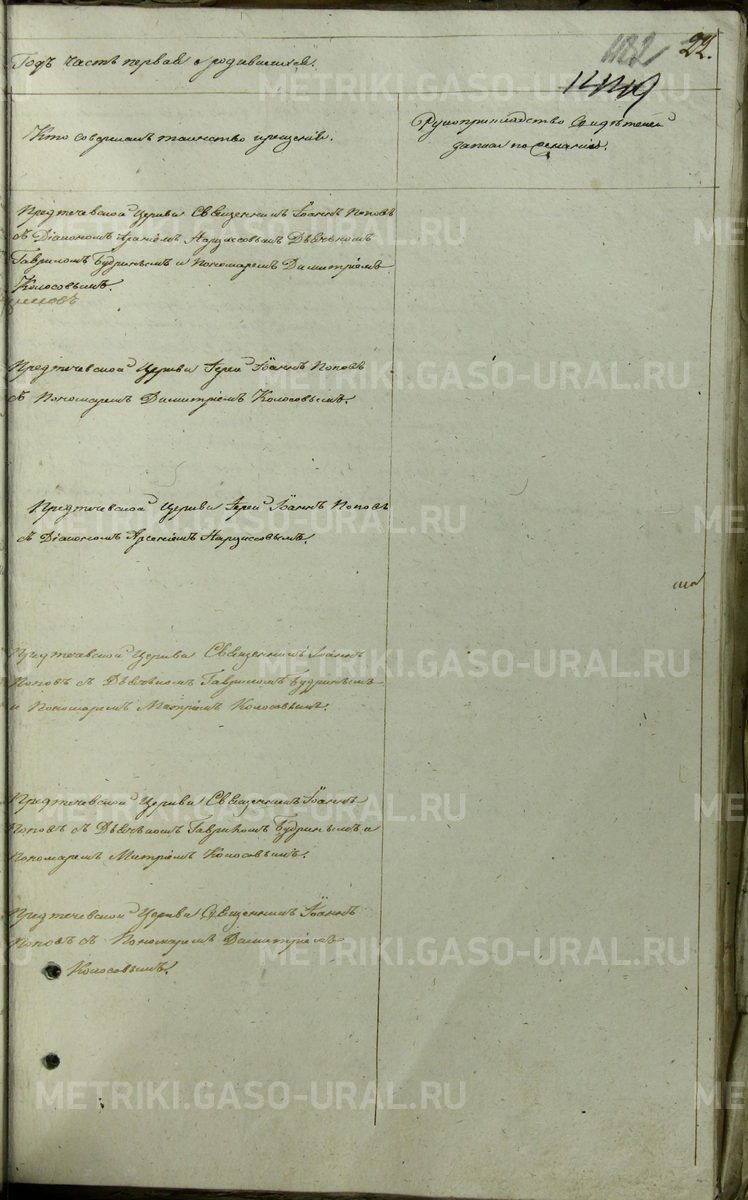 22.
Годъ часть первая о родившихся.
Кто совершалъ таинство крещенія.
Рукоприкладство свидѣтелей
записи по желанію.
Предтечевской Церкви Священникъ Іоаннъ Поповъ
съ Діакономъ Нарциссовымъ Дьячкомъ
Гавриломъ Будринымъ и Пономаремъ Димитріемъ
Колосовымъ.
Предтечевской Церкви Іерей Іоаннъ Поповъ
съ Пономаремъ Димитріемъ Колосовымъ.
Предтечевской Церкви Іерей Іоаннъ Поповъ
съ Діакономъ Арсеніемъ Нарциссовымъ.
Предтечевской Церкви Священникъ Іоаннъ
Поповъ съ Дьячкомъ Гавриломъ Будринымъ
и Пономаремъ Митріемъ Колосовымъ.
Предтечевской Церкви Священникъ Іоаннъ
Поповъ съ Дьячкомъ Гавриломъ Будринымъ и
Пономаремъ Митріемъ Колосовымъ.
Предтечевской Церкви Священникъ Іоаннъ
Поповъ съ Пономаремъ Димитріемъ
Колосовымъ.
METRIKI.GASO-URAL.RU
METRIKI.GASO-URAL.RU
METRIKI.GASO-URAL.RU
METRIKI.GASO-URAL.RU
METRIKI.GASO-URAL.RU
METRIKI.GASO-URAL.RU
METRIKI.GASO-URAL.RU
METRIKI.GASO-URAL.RU